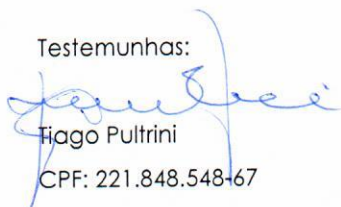 Testemunhas:
Tiago Pultrini
CPF: 221.848.548-67